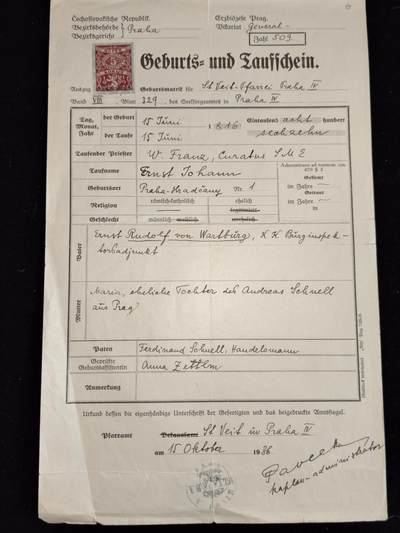 Čechoslovakische Republik.
Bezirksbehörde
Bezirksgericht } Praha
Erzdiözese Prag.
Vikariat General-
Zahl 509.
Geburts- und Taufschein.
Auszug Geburtsmatrik für St Veit-Pfarrei Praha IV
Band VIII, Blatt 329, des Seelsorgeamtes in Praha IV
Tag, Monat, Jahr
der Geburt 15 Juni
der Taufe 15 Juni
1816 Eintausend acht hundert
sechzehn
Taufender Priester W. Franz, Curatus S M E
Taufname Ernst Johann
Geburtsort Praha-Hradčany Nr 1
Religion römisch-katholisch ehelich
Geschlecht männlich weiblich
im Jahre —
im Jahre —
Vater
Ernst Rudolf von Wartburg, K. K. Burginspek-
torsadjunkt
Mutter
Maria, eheliche Tochter des Andreas Schnell
aus Prag
Paten Ferdinand Schnell, Handelsmann
Geprüfte Geburtsassistentin Anna
Anmerkung
Urkund dessen die eigenhändige Unterschrift der Gefertigten und das beigedruckte Amtssiegel.
Pfarramt St Veit in Praha IV
am 15 Oktober 1936
kaplan-administrator